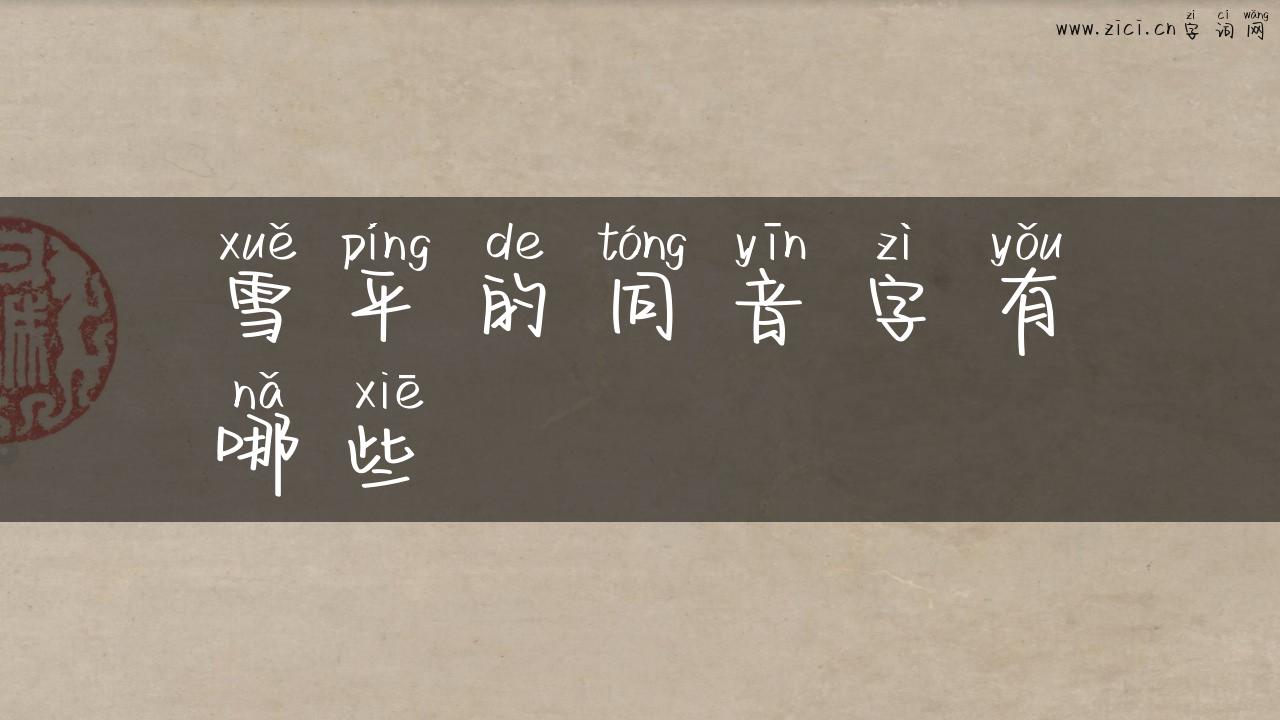 zì cí wǎng
www.zici.cn 字词网
xuě píng de tóng yīn zì yǒu
雪平的同音字有
nǎ xiē
哪些